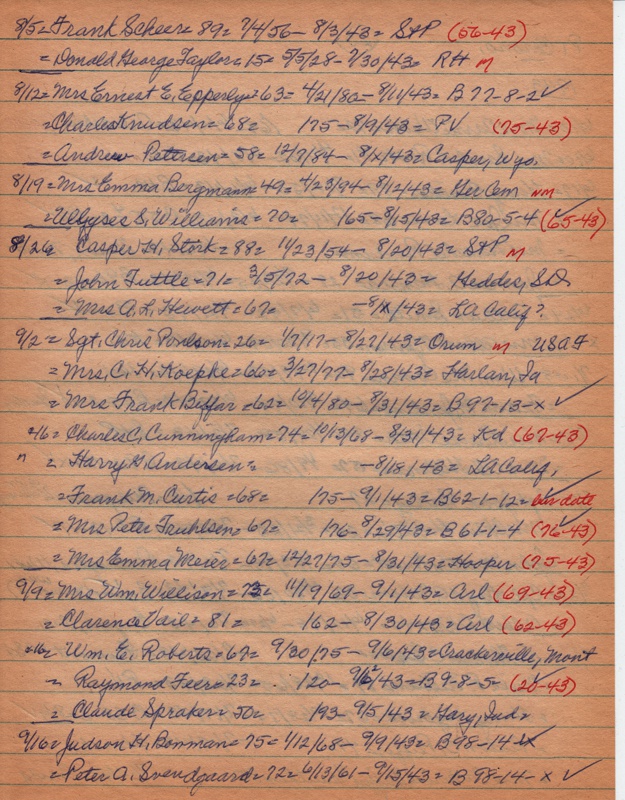 8/5= Frank Scheer= 89= 7/4/56 - 8/3/43= S+P (56-43)
= Donald George Taylor= 15= 5/5/28 - 7/30/43= RH M
8/12= Mrs Ernest E. Epperly= 63= 4/21/80 - 8/11/43= B77-8-2 ✓
= Charles Knudsen= 68= 175 - 8/9/43= PV (75-43)
= Andrew Petersen= 58= 12/7/84 - 8/x/43= Casper, Wyo.
8/19= Mrs Emma Bergmann= 49= 4/23/94 - 8/12/43= Ger Cem NM
= Ullyses S. Williams= 70= 165 - 8/15/43= B80-5-4 ✓ (65-43)
8/26= Casper H. Stork= 88= 11/23/54 - 8/20/43= S+P M
= John Tuttle= 71= 3/5/72 - 8/20/43= Heddes, SD
= Mrs A. L. Hewett= 67= - 8/x/43= LA Calif?
9/2= Sgt. Chris Poulson= 26= 1/7/17 - 8/27/43= Orum M USAF
= Mrs. C. H. Koepke= 66= 3/27/77 - 8/28/43= Harlan, Ia
= Mrs Frank Biffar= 62= 10/4/80 - 8/31/43= B97-13-x ✓
= 16= Charles C. Cunningham= 74= 10/13/68 - 8/31/43= Kd (67-43)
" = Harry G. Andersen= - 8/18/43= LA Calif.
= Frank M. Curtis= 68= 175 - 9/1/43= B62-1-12= ✓ date
= Mrs Peter Fruhlsen= 67= 176 - 8/29/43= B61-1-4 ✓ (76-43)
= Mrs Emma Meier= 67= 12/27/75 - 8/31/43= Hooper (75-43)
9/9= Mrs Wm. Willison= 73= 11/19/69 - 9/1/43= Arl (69-43)
= Clarence Vail= 81= 162 - 8/30/43= Arl (62-43)
= 16= Wm. E. Roberts= 67= 9/30/75 - 9/6/43= Crackerville, Mont
= Raymond Feer= 23= 120 - 9/6/43= B9-8-5= ✓ (20-43)
= Claude Spraker= 50= 193 - 9/5/43= Gary, Ind=
9/16= Judson H. Bowman= 75= 1/12/68 - 9/9/43= B98-14-x ✓
= Peter A. Svendgaard= 72= 6/13/61 - 9/15/43= B98-14-x ✓